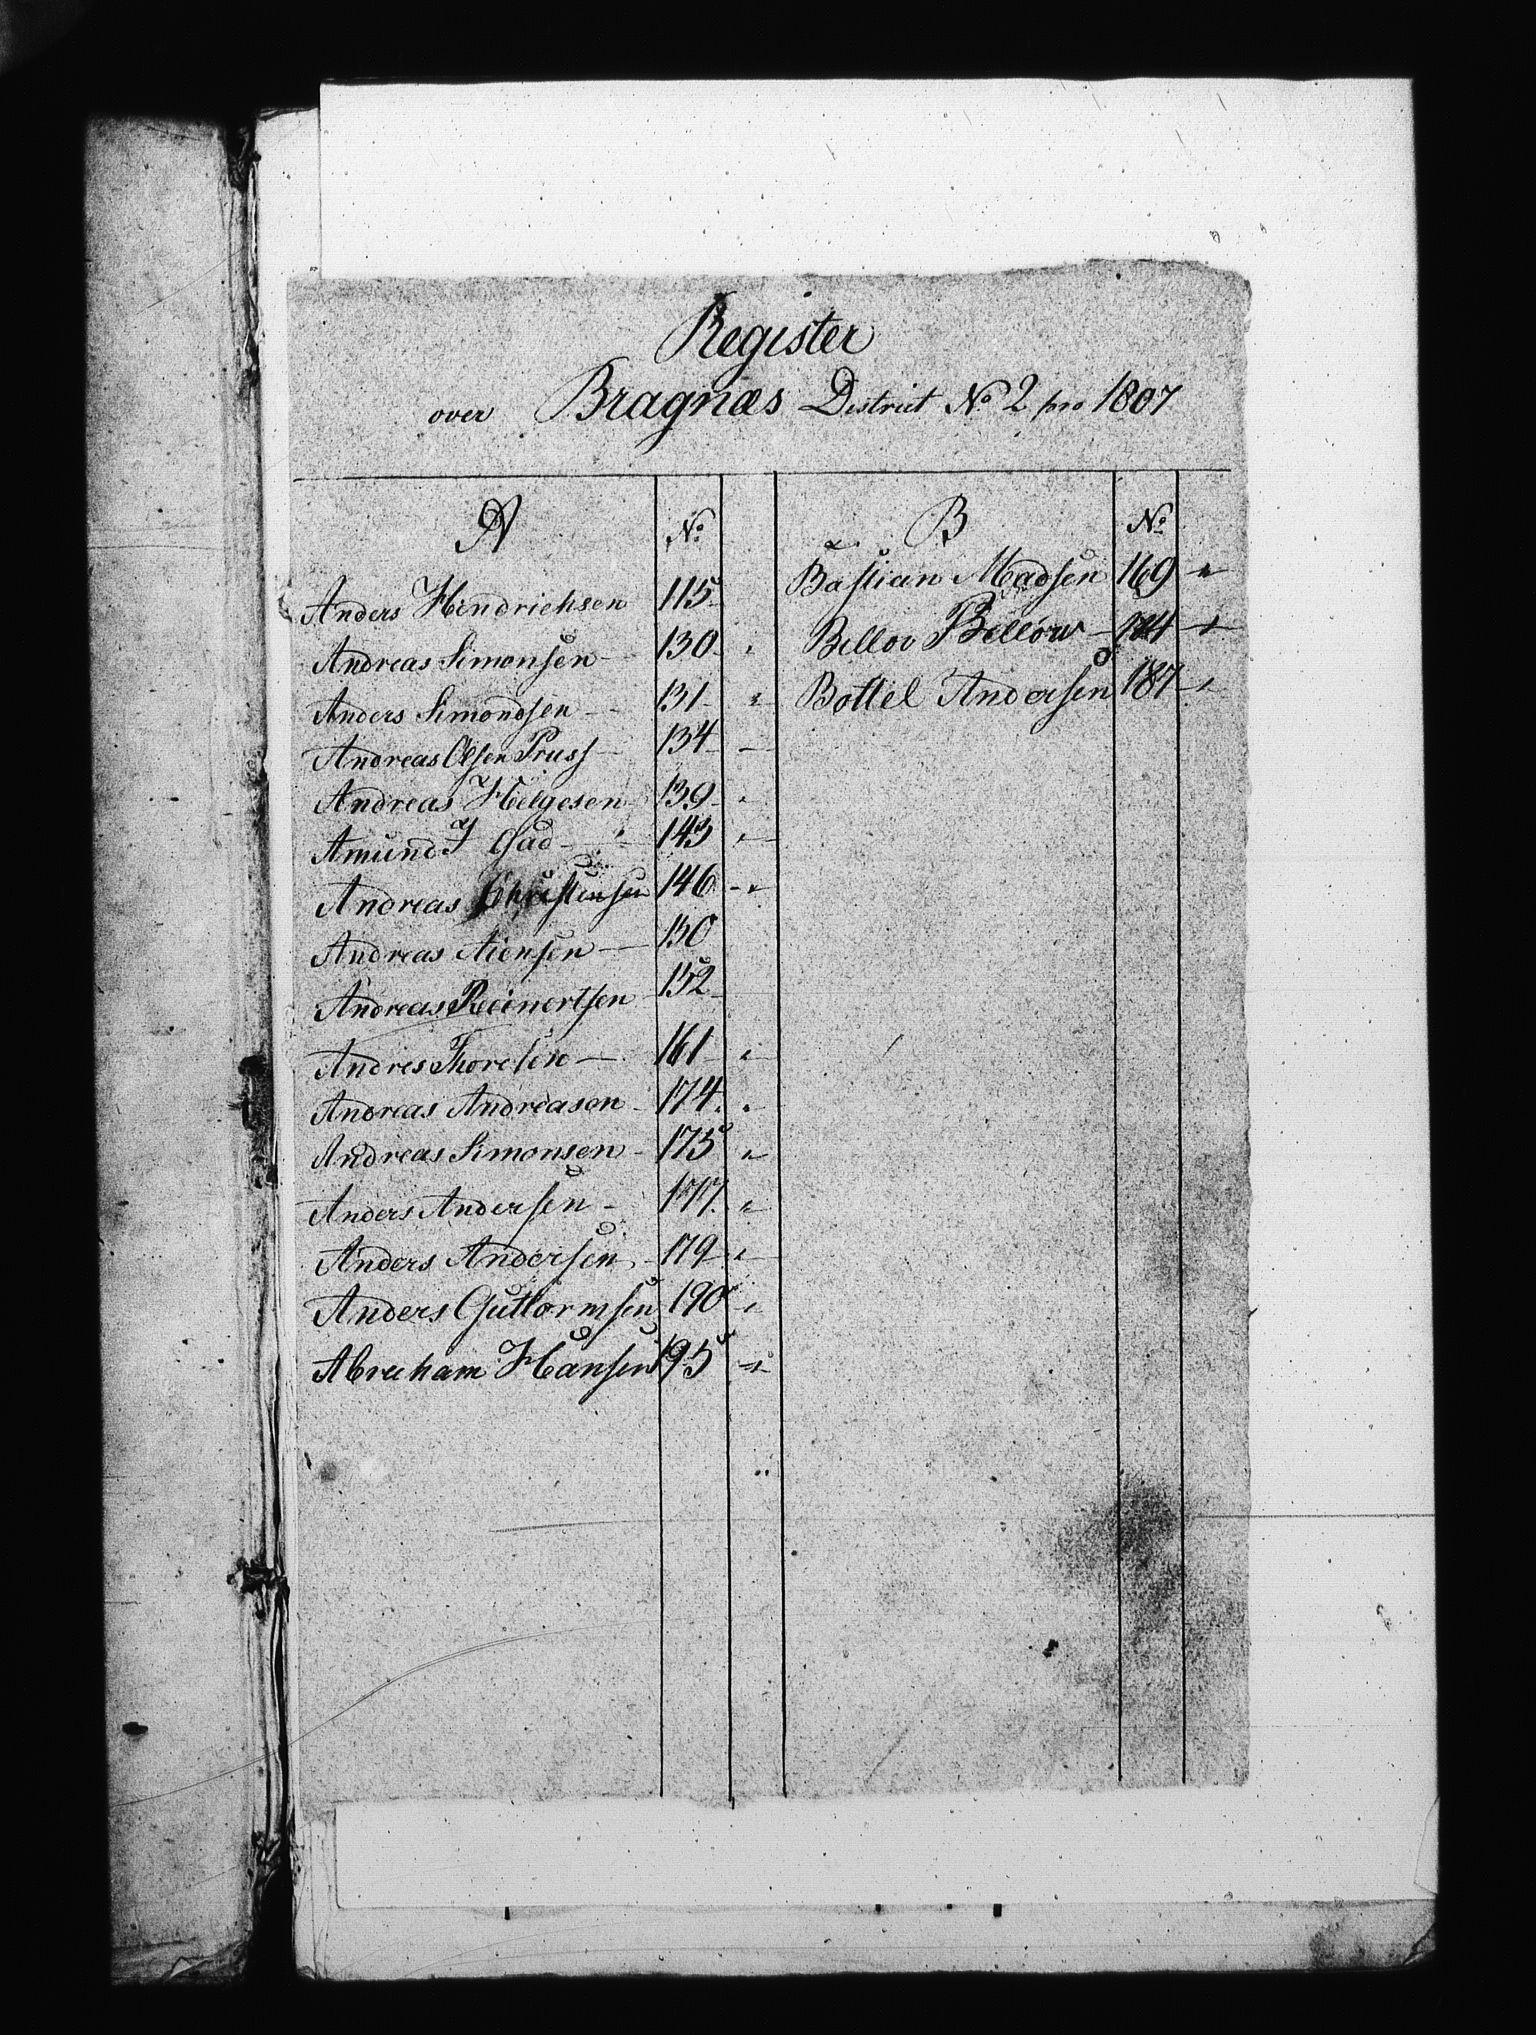 Register
over Bragnæs District No 2 pro 1807
A No
Anders Hendrichsen 115
Andreas Simonsen 130
Anders Simondsen 131
Andreas Olsen Pruss 134
Andreas Helgesen 139
Amund J Gad 143
Andreas Christensen 146
Andreas 150
Andreas Reinertsen 152
Andres Thoresen 161
Andreas Andreasen 174
Andreas Simonsen 175
Anders Andersen 177
Anders Andersen 179
Anders Guttormsen 190
Abraham Hansen 195
B No
Bastian Madsen 169
Bellow
Bottel Andersen 187